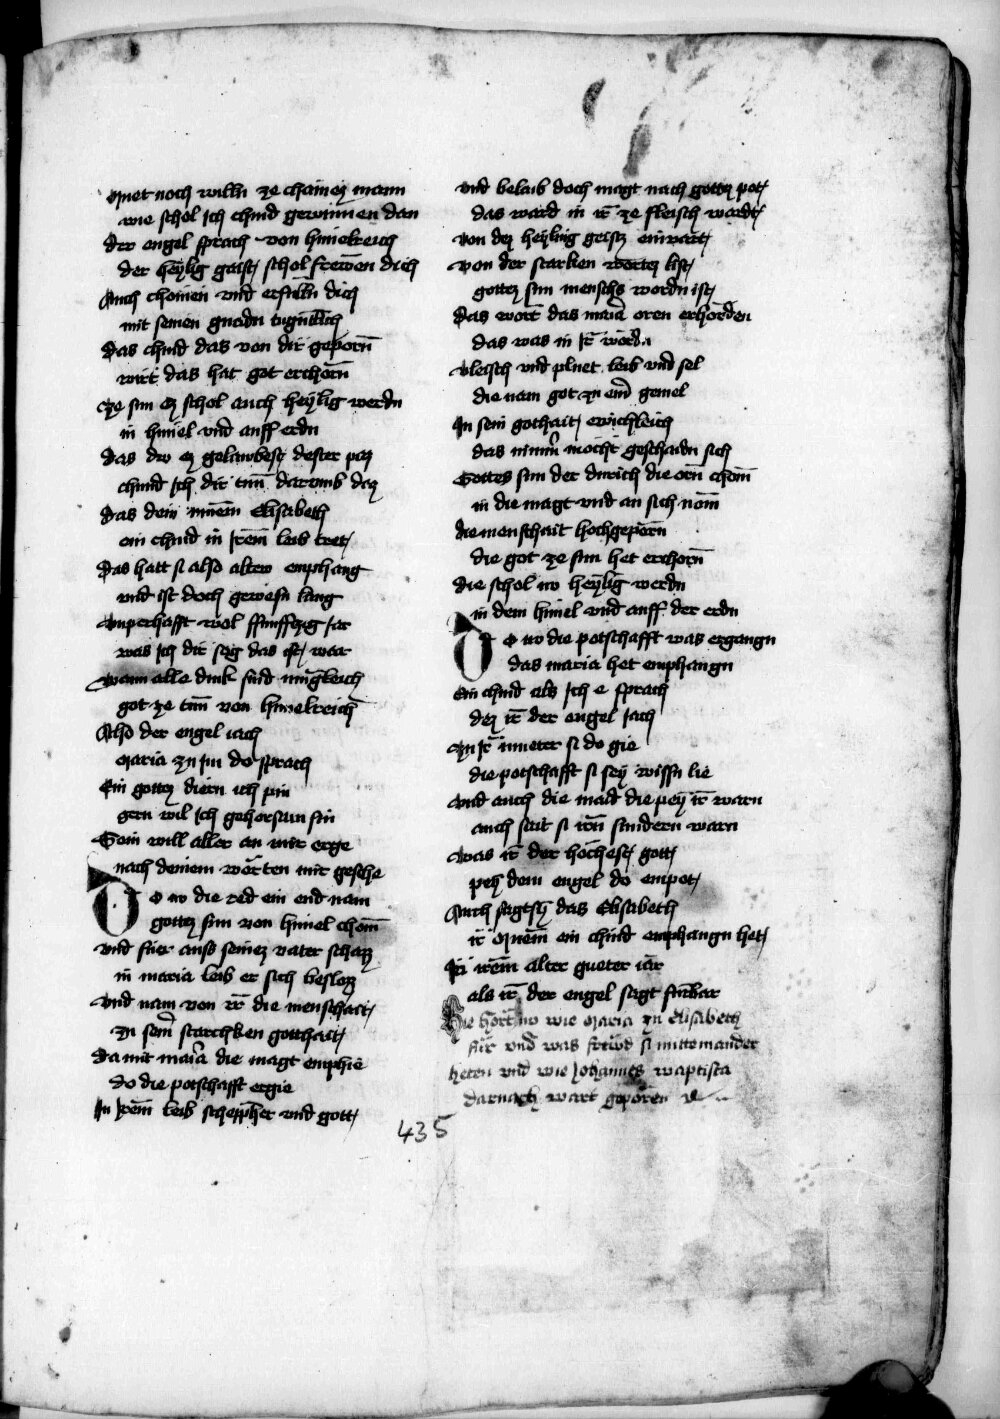 Muet noch willn ze chainez mann
wie schol ich chind gewinnen dan
Der engel sprach von himelreich
der heylig gaist schol frewen dich
Auch chomen und erfulln dich
mit seinen gnadn tugntlich
Das chind das von dir geporn
wirt das hat got erchorn
Ze sun ez schol auch heylig werdn
in himel und auff erdn
Das dw ez gelawbest dester paz
chund ich dir tun darumb daz
Das dein mumem Elisabeth
ein chind in irem leib tret
Das hatt si also altew emphang
und ist doch gewesn lang
Unperhafft wol ffunffczig jar
was ich dir sag das ist war
Wann alle dink sind mugleich
got ze tun von himelreich
Also der engel iach
Maria zu im do sprach
Ein gottez diern ich pin
gern wil ich gehorsam sin
Sein will aller an mir erge
nach deinem worten mir gesche
Do nw die red ein end nam
gottez sun von himel chom
Und fuer auss seinez vater schatz
in maria leib er sich besloz
Und nam von ir die menschait
zu seiner starchken gotthait
Da mit maria die magt emphie
do die potschafft ergie
In irem leib schepfher und gott
und belaib doch magt nach gottez pot
das ward in ir ze fleisch wardt
Von dez heyling geistz einvart
Von der starken wortez list
gottez sun menschs wordn ist
Das wort das maria oren erhorden
das was in ir word
Vleisch und pluet leib und sel
die nam got zu end gemel
In sein gothait ewichleich
das nimer mocht geschaidn sich
Gottes sun der durich die orn chom
in die magt und an sich nom
die menschait hochgeporn
die got ze sun het erchorn
die schol nw heylig werdn
in dem himel und auff der erdn
Do nw die potschafft was ergangn
das maria het emphangn
Ein chind als ich e sprach
dez ir der engel iach
Zu ir mueter si do gie
die potschafft si sey wissn lie
Und auch die maid die pey ir warn
auch sait si irn sundern warn
Was ir der hochest gott
pey dem engel do enpot
Auch sagt sy das Elisabeth
ir Muem ein chind emphangn het
Pei irem alter gueter iar
als ir der engel sagt furbar
Hie hort nw wie Maria zu Elisabeth
fur und was frewd si mitteinander
heten und wie Johannes waptista
darnach wart geporen
435